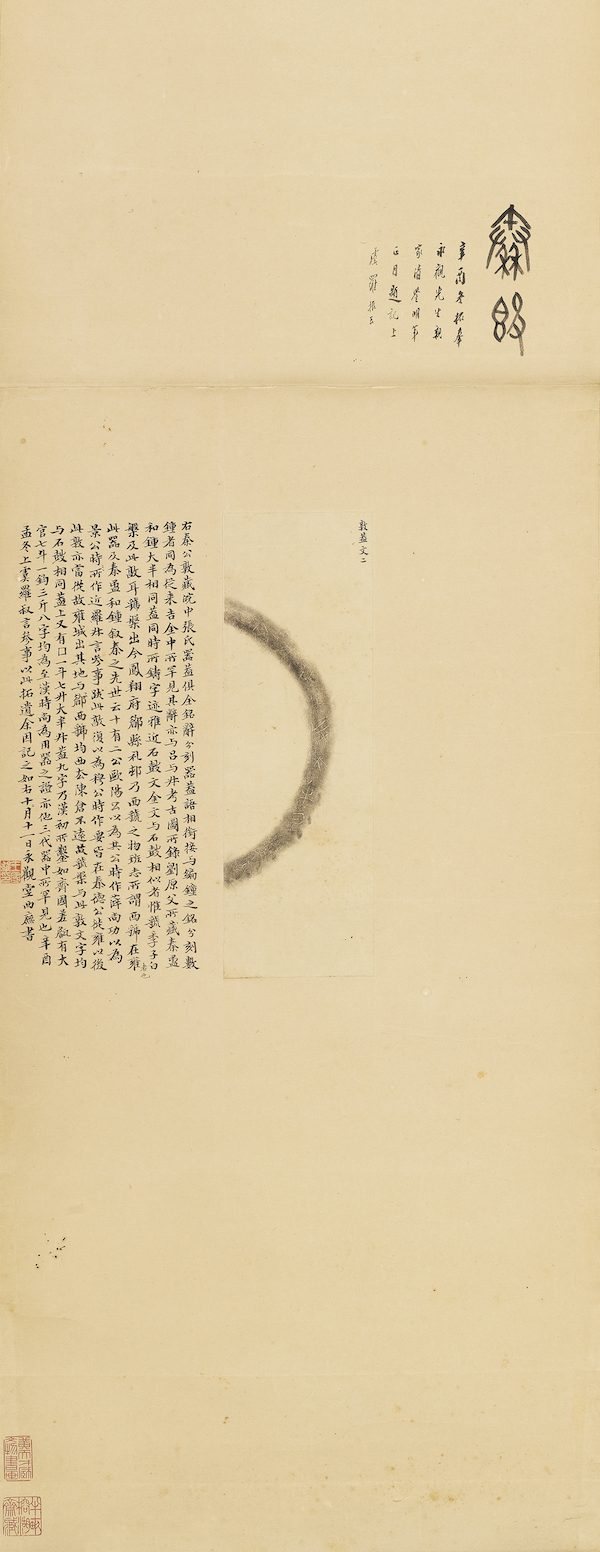 秦敦
辛酉冬拓奉
永觀先生親
家清鑒明年
正月題記上
虞羅振玉
敦蓋文二
右秦公敦藏皖中張氏器蓋俱全銘辭分刻器蓋語相銜接与編鐘之銘分刻數
鐘者同為從來吉金中所罕見其辭亦与呂与叔考古圖所錄劉原父所藏秦盄
和鐘大半相同蓋同時所鑄字迹雅近石鼓文金文与石鼓相似者惟虢季子白
槃及此敦耳虢槃出今鳳翔府郿縣礼邨乃西虢之物班志所謂西虢在雍
者也
此器及秦盄和鐘敘秦之先世云十有二公歐陽公以為共公時作薛尚功以為
景公時所作近羅叔言參事跋此敦復以為穆公時作要皆在秦德公徙雍以後
此敦亦當從故雍城出其地与郿西虢均西去陳倉不遠故虢槃与此敦文字均
与石鼓相同蓋上又有囗一斗七升大半升蓋九字乃漢初所鑿如齊國差甔有大
官七斗一鈞三斤八字均為至漢時尚為用器之證亦他三代器中所罕見也辛酉
孟冬上虞羅叔言參事以此拓遺余因記之如右十月十一日永觀堂西廡書